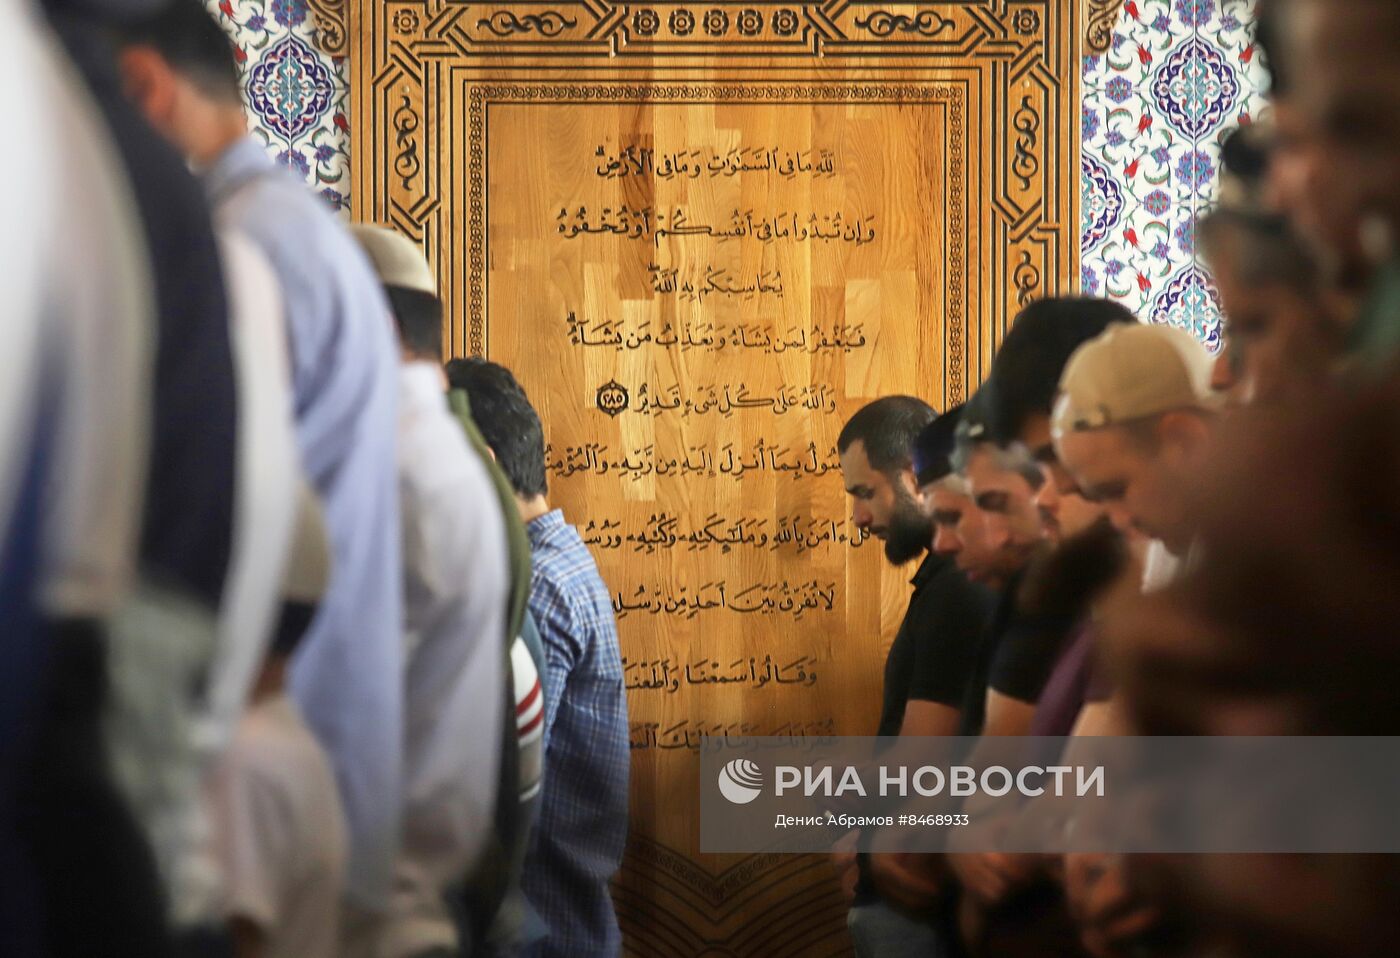 لِلَّهِ مَا فِي ٱلسَّمَٰوَٰتِ وَمَا فِي ٱلْأَرْضِۗ
وَإِن تُبْدُوا۟ مَا فِىٓ أَنفُسِكُمْ أَوْ تُخْفُوهُ
يُحَاسِبْكُم بِهِ ٱللَّهُۖ
فَيَغْفِرُ لِمَن يَشَآءُ وَيُعَذِّبُ مَن يَشَآءُۗ
وَٱللَّهُ عَلَىٰ كُلِّ شَىْءٍ قَدِيرٌ ٢٨٥
سُولُ بِمَآ أُنزِلَ إِلَيْهِ مِن رَّبِّهِۦ وَٱلْمُؤْمِنُ
كُلٌّ ءَامَنَ بِٱللَّهِ وَمَلَٰٓئِكَتِهِۦ وَكُتُبِهِۦ وَرُسُ
لَا نُفَرِّقُ بَيْنَ أَحَدٍ مِّن رُّسُلِهِ
وَقَالُوا۟ سَمِعْنَا وَأَطَعْنَا
غُفْرَانَكَ رَبَّنَا وَإِلَيْكَ ٱلْمَ
РИА НОВОСТИ
Денис Абрамов #8468933